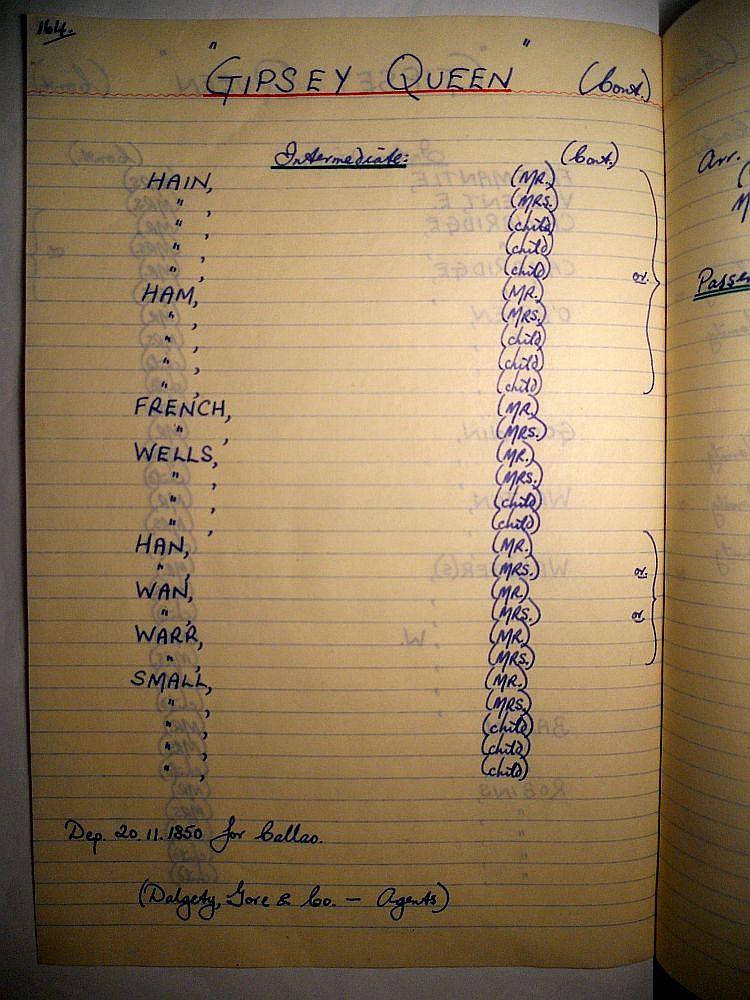 164.
"GIPSEY QUEEN" (Cont.)
Intermediate: (Cont.)
HAIN, (MR.)
" , (MRS.)
" , (child)
" , (child)
" , (child) or.
HAM, (MR.)
" , (MRS.)
" , (child)
" , (child)
" , (child)
FRENCH, (MR.)
" , (MRS.)
WELLS, (MR.)
" , (MRS.)
" , (child)
" , (child)
HAN, (MR.)
" , (MRS.) or.
WAN, (MR.)
" , (MRS.) or.
WARR, (MR.)
" , (MRS.)
SMALL, (MR.)
" , (MRS.)
" , (child)
" , (child)
" , (child)
Dep. 20.11.1850 for Callao.
(Dalgety, Gore & Co. — Agents)
Arr.